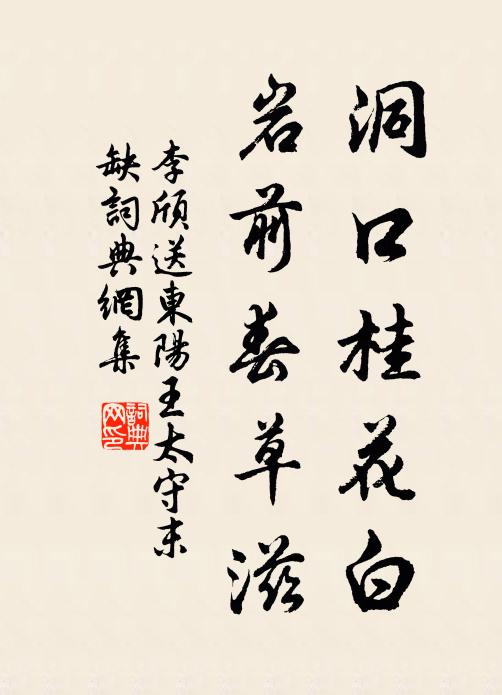 洞口桂花白
岩前春草滋
李颀送東陽王太守末
缺詞典網集
詞典网印